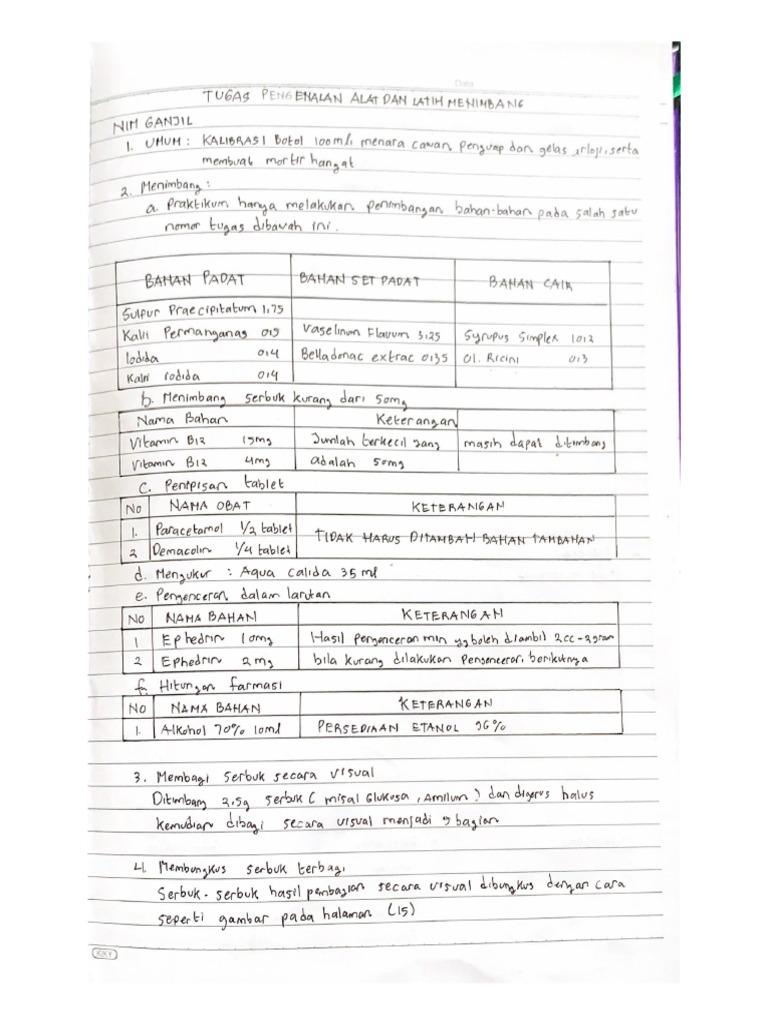 Date
TUGAS PENGENALAN ALAT DAN LATIH MENIMBANG
NIM GANJIL
1. UMUM : KALIBRASI Botol 100ml, menara cawan, penguap dan gelas arloji, serta
membuat mortir hangat
2. Menimbang :
a. Praktikum hanya melakukan penimbangan bahan-bahan pada salah satu
nomor tugas dibawah ini.
BAHAN PADAT BAHAN SET PADAT BAHAN CAIR
Sulfur Praecipitatum 1,75
Kalii Permanganas 0,5 Vaselinum Flavum 3,25 Syrupus Simplex 10,2
Iodida 0,4 Belladonac extrac 0,35 Ol. Ricini 0,3
Kalii Iodida 0,4
b. Menimbang serbuk kurang dari 50mg
Nama Bahan Keterangan
Vitamin B12 15mg Jumlah terkecil yang masih dapat ditimbang
Vitamin B12 4mg adalah 50mg
c. Penipisan tablet
No NAMA OBAT KETERANGAN
1. Paracetamol 1/2 tablet TIDAK HARUS DITAMBAH BAHAN TAMBAHAN
2 Demacolin 1/4 tablet
d. Mengukur : Aqua Calida 35 ml
e. Pengenceran dalam larutan
No NAMA BAHAN KETERANGAN
1 Ephedrin 10mg Hasil pengenceran min yg boleh diambil 2cc-2gram
2 Ephedrin 2mg bila kurang dilakukan pengenceran, berikutnya
f. Hitungan farmasi
NO NAMA BAHAN KETERANGAN
1. Alkohol 70% 10ml PERSEDIAAN ETANOL 96%
3. Membagi serbuk secara visual
Ditimbang 2,5g serbuk ( misal Glukosa, Amilum ) dan digerus halus
kemudian dibagi secara visual menjadi 5 bagian
4. Membungkus serbuk terbagi
Serbuk-serbuk hasil pembagian secara visual dibungkus dengan cara
seperti gambar pada halaman (15)
KKY